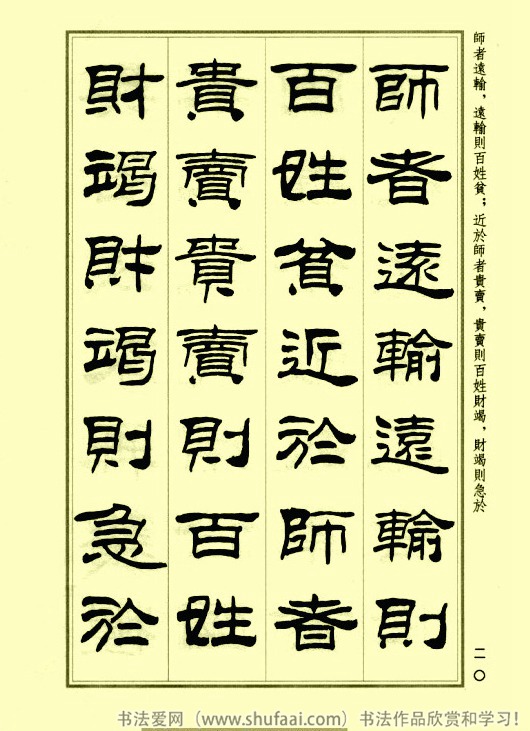 師者遠輸，遠輸則百姓貧；近於師者貴賣，貴賣則百姓財竭，財竭則急於
師者遠輸遠輸則
百姓貧近於師者
貴賣貴賣則百姓
財竭財竭則急於
二〇
书法爱网（www.shufaai.com）书法作品欣赏和学习！